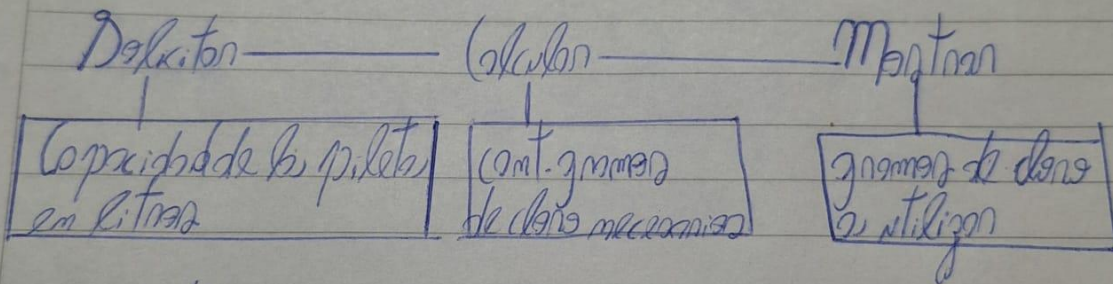 Solicitar Calcular Mostrar
Capacidad de la pileta
en litros
cant. gramos
de cloro necesarios
gramos de cloro
a utilizar